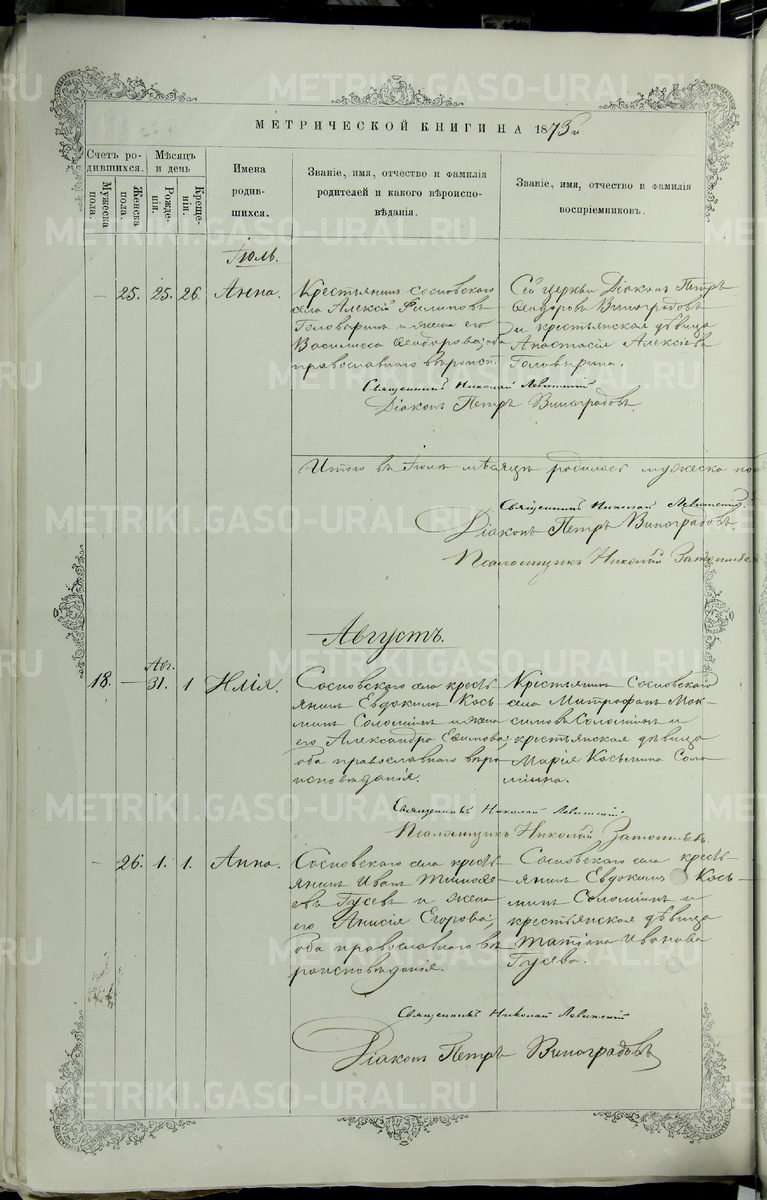 METRIKI.GASO-URAL.RU
МЕТРИЧЕСКОЙ КНИГИ НА 1875й
Счетъ ро-
дившихся.
Мужеска
пола.
Женска
пола.
Мѣсяцъ
и день
Рожде-
нія.
Креще-
нія.
Имена
родив-
шихся.
Званіе, имя, отчество и фамилія
родителей и какого вѣроиспо-
вѣданія.
Званіе, имя, отчество и фамилія
воспріемниковъ.
Іюль.
— 25. 25. 26. Анна.
Крестьянинъ Сосновскаго
села Алексій Филиповъ
Головыринъ и жена его
Василисса Ѳеодорова; оба
православнаго вѣроисп.
Сей церкви Діаконъ Петръ
Ѳеодоровъ Виноградовъ
и крестьянская дѣвица
Анастасія Алексіева
Головырина.
Священникъ Николай Левитскій
Діаконъ Петръ Виноградовъ.
Итого въ Іюлѣ мѣсяцѣ родилось мужеска пол
Священникъ Николай Левитскій.
Діаконъ Петръ Виноградовъ.
Псаломщикъ Николай
Августъ.
18. — Авг. 31. 1 Илія.
Сосновскаго села кресть-
янинъ Евдокимъ Кось-
минъ Соломинъ и жена
его Александра Евимова;
оба православнаго вѣро
исповѣданія.
Крестьянинъ Сосновскаго
села Митрофанъ Мак-
симовъ Соломинъ и
крестьянская дѣвица
Марія Косьмина Соло-
мина.
Священникъ Николай Левитскій
Псаломщикъ Николай
— 26. 1. 1. Анна.
Сосновскаго села кресть-
янинъ Иванъ Тимоѳе-
евъ Гусевъ и жена
его Анисія Егорова;
оба православнаго вѣ-
роисповѣданія.
Сосновскаго села кресть-
янинъ Евдокимъ Кось-
минъ Соломинъ и
крестьянская дѣвица
Татіана Иванова
Гусева.
Священникъ Николай Левитскій
Діаконъ Петръ Виноградовъ